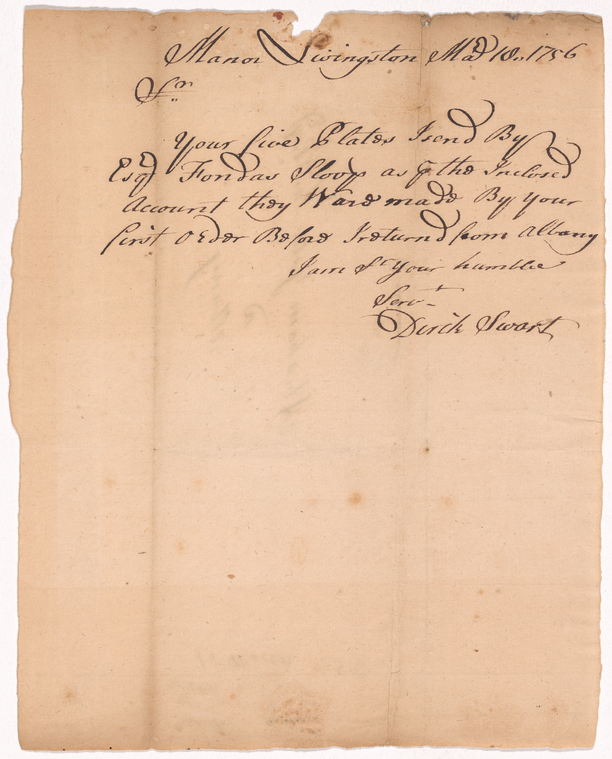 Manor Livingston Mad 18,, 1756
Sr
Your five Plates I send By
Esqr Fondas Sloop as ⅌ the Inclosed
Account they Ware made By Your
first Order Before I returnd from Albany
I am Sr Your humble
Servt
Dirck Swart